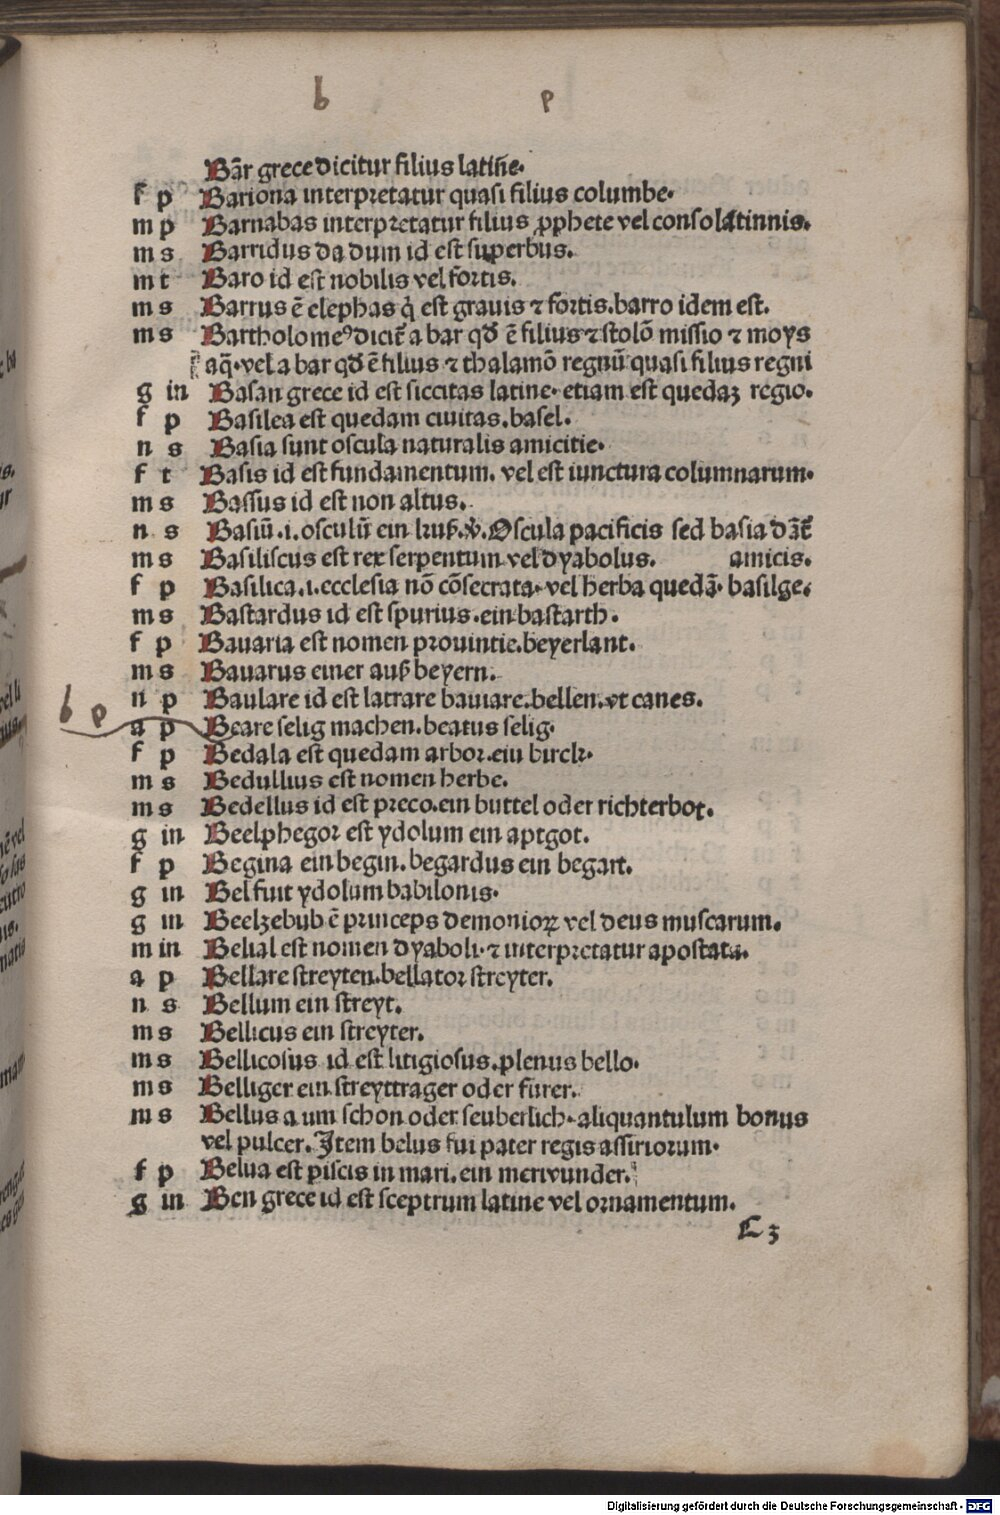 b p
Bār grece dicitur filius latine.
f p Bariona interpretatur quasi filius columbe.
m p Barnabas interpretatur filius ꝓphete vel consolatinnis.
m s Barridus da dum id est superbus.
m t Baro id est nobilis vel fortis.
m s Barrus ē elephas q̇ est grauis ⁊ fortis. barro idem est.
m s Bartholomeꝰ dicit̄ a bar qđ ē filius ⁊ stolō missio ⁊ moys
aq̄. vel a bar qđ ē filius ⁊ thalamō regnū quasi filius regni
g in Basan grece id est siccitas latine. etiam est quedaꝫ regio.
f p Basilea est quedam ciuitas. basel.
n s Basia sunt oscula naturalis amicitie.
f t Basis id est fundamentum. vel est iunctura columnarum.
m s Bassus id est non altus.
n s Basiū .i. osculū ein kuß. ꝟ. Oscula pacificis sed basia dāt̄
m s Basiliscus est rex serpentum vel dyabolus. amicis.
f p Basilica .i. ecclesia nō cōsecrata. vel herba quedā. basilge.
m s Bastardus id est spurius. ein bastarth.
f p Bauaria est nomen prouintie. beyerlant.
m s Bauarus einer auß beyern.
n p Baulare id est latrare bauiare. bellen. vt canes.
b p
a p Beare selig machen. beatus selig.
f p Bedala est quedam arbor. ein birck.
m s Bedullius est nomen herbe.
m s Bedellus id est preco. ein buttel oder richterbot.
g in Beelphegor est ydolum ein aptgot.
f p Begina ein begin. begardus ein begart.
g in Bel fuit ydolum babilonis.
g in Beelzebub ē princeps demonioꝝ vel deus muscarum.
m in Belial est nomen dyaboli. ⁊ interpretatur apostata.
a p Bellare streyten. bellator streyter.
n s Bellum ein streyt.
m s Bellicus ein streyter.
m s Bellicosus id est litigiosus. plenus bello.
m s Belliger ein streyttrager oder furer.
m s Bellus a um schon oder seuberlich. aliquantulum bonus
vel pulcer. Item belus fui pater regis assiriorum.
f p Belua est piscis in mari. ein merwunder.
g in Ben grece id est sceptrum latine vel ornamentum.
C 3
Digitalisierung gefördert durch die Deutsche Forschungsgemeinschaft - DFG